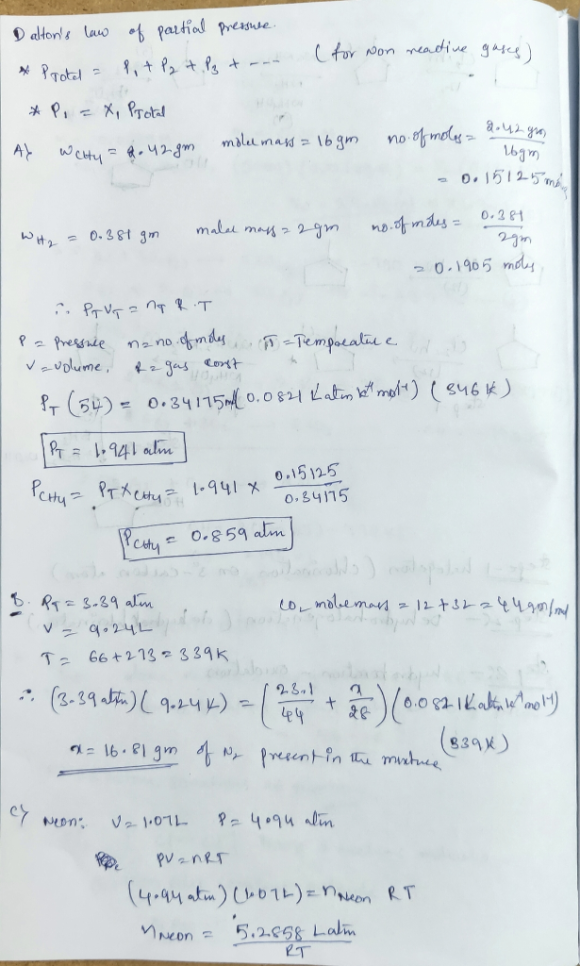 Dalton's law of partial pressure.
* PTotal = P1 + P2 + P3 + --- (for Non reactive gases)
* P1 = X1 PTotal
A) WCH4 = 2.42gm molee mass = 16gm no. of moles = 2.42 gm / 16gm
= 0.15125 moles
WH2 = 0.381 gm molee mass = 2gm no. of moles = 0.381 / 2gm
= 0.1905 moles
∴ PTVT = nT R . T
P = Pressure n = no. of moles T = Temperature.
V = volume, R = gas const
PT (5L) = 0.34175 (0.0821 Latm k-1 mol-1) (346 K)
PT = 1.941 atm
PCH4 = PT XCH4 = 1.941 × 0.15125 / 0.34175
PCH4 = 0.859 atm
B. PT = 3.39 atm CO2 molemass = 12 + 32 = 44gm/mol
V = 9.24L
T = 66 + 273 = 339K
∴ (3.39 atm) (9.24 L) = (23.1 / 44 + x / 28) (0.0821 Latm k-1 mol-1)
(339K)
x = 16.81 gm of N2 present in the mixture
C) Neon: V = 1.07L P = 4.94 atm
PV = nRT
(4.94 atm) (1.07L) = nNeon RT
nNeon = 5.2858 Latm / RT